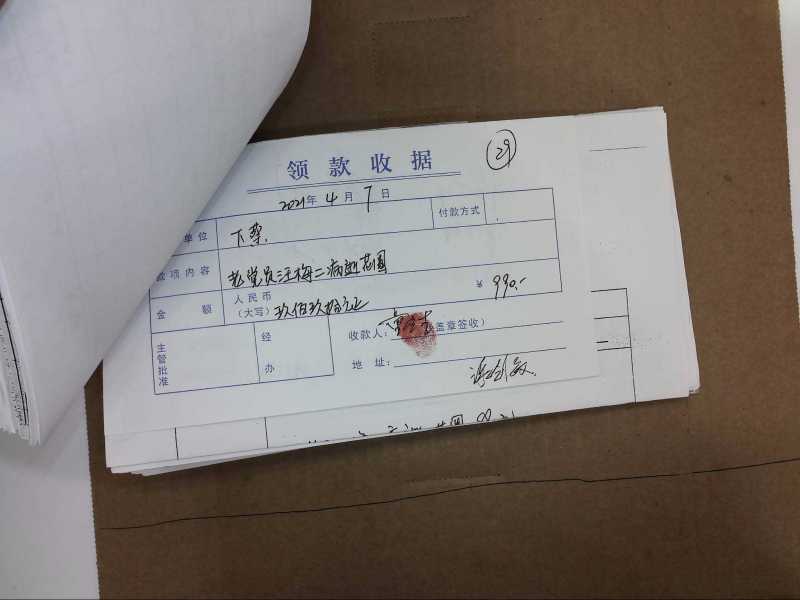 领款收据
29
2021年4月7日
单位 下蔡 付款方式
款项内容 老党员汪梅二病逝花圈
金额 人民币(大写) 玖佰玖拾元正 ¥990.-
主管批准 经办 收款人: (盖章签收)
地址: